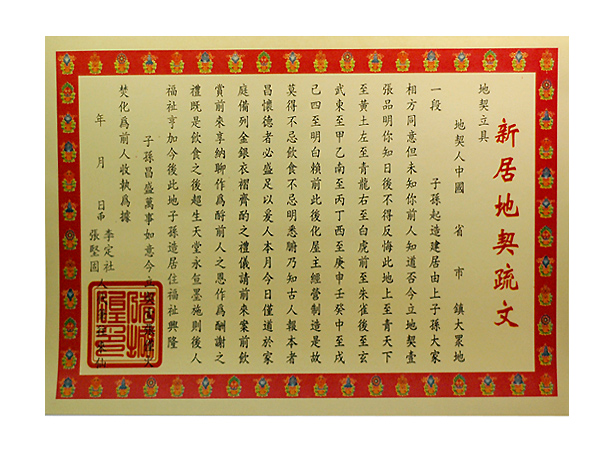 新居地契疏文
地契立具
地契人中國 省 市 鎮大眾地
一段 子孫起造建居由上子孫大家
相方同意但未知你前人知道否今立地契壹
張品明你知日後不得反悔此地上至青天下
至黄土左至青龍右至白虎前至朱雀後至玄
武東至甲乙南至丙丁西至庚申壬癸中至戌
己四至明白賴前此後化屋主經營制造是故
莫得不忌飲食不忌明悉腑乃知古人報本者
昌懷德者必盛足以爰人本月今日僅道於家
庭備列金銀衣褶齊酌之禮儀請前來案前飲
賞前來享納聊作爲酧前人之恩作爲酬謝之
禮既是飲食之後超生天堂永㝎墨施則後人
福祉亨加今後此地子孫造居住福祉興隆
子孫昌盛萬事如意今立
焚化爲前人收執爲據
年 月 日
李定社
張堅固